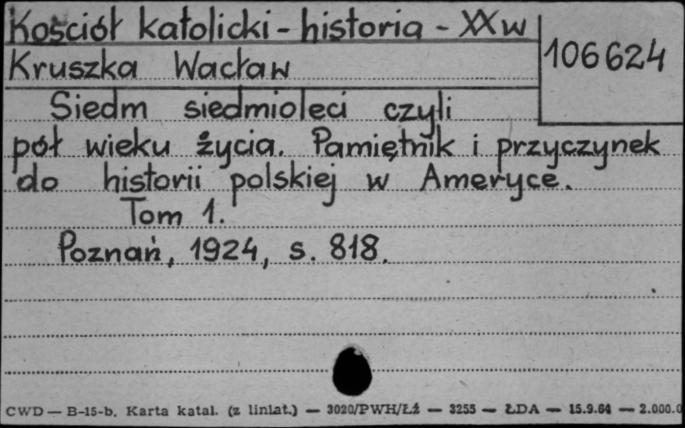 Kościół katolicki - historia - XX w
106624
Kruszka Wacław
Siedm siedmioleci czyli
pół wieku życia. Pamiętnik i przyczynek
do historii polskiej w Ameryce.
Tom 1.
Poznań, 1924, s. 818.
CWD — B-15-b. Karta katal. (z liniat.) — 3020/PWH/Łź — 3255 — ŁDA — 15.9.64 — 2.000.0